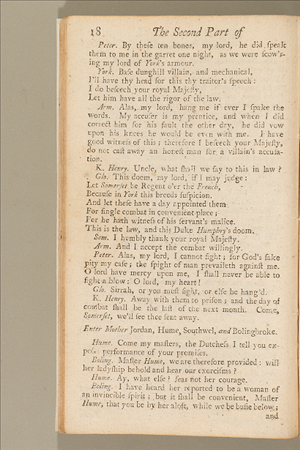 18 The Second Part of
Peter. By these ten bones, my lord, he did speak
them to me in the garret one night, as we were scow'r-
ing my lord of York's armour.
York. Base dunghill villain, and mechanical,
I'll have thy head for this thy traitor's speech:
I do beseech your royal Majesty,
Let him have all the rigor of the law.
Arm. Alas, my lord, hang me if ever I spake the
words. My accuser is my prentice, and when I did
correct him for his fault the other day, he did vow
upon his knees he would be even with me. I have
good witness of this; therefore I beseech your Majesty,
do not cast away an honest man for a villain's accusa-
tion.
K. Henry. Uncle, what shall we say to this in law?
Glo. This doom, my lord, if I may judge:
Let Somerset be Regent o'er the French,
Because in York this breeds suspicion.
And let these have a day appointed them
For single combat in convenient place;
For he hath witness of his servant's malice.
This is the law, and this Duke Humphry's doom.
Som. I humbly thank your royal Majesty.
Arm. And I accept the combat willingly.
Peter. Alas, my lord, I cannot fight; for God's sake
pity my case; the spight of man prevaileth against me.
O lord have mercy upon me, I shall never be able to
fight a blow: O lord, my heart!
Glo. Sirrah, or you must fight, or else be hang'd.
K. Henry. Away with them to prison; and the day of
combat shall be the last of the next month. Come,
Somerset, we'll see thee sent away.
Enter Mother Jordan, Hume, Southwel, and Bolingbroke.
Hume. Come my masters, the Dutchess I tell you ex-
pects performance of your promises.
Boling. Master Hume, we are therefore provided: will
her ladyship behold and hear our exorcisms?
Hume. Ay, what else? fear not her courage.
Boling. I have heard her reported to be a woman of
an invincible spirit; but it shall be convenient, Master
Hume, that you be by her aloft, while we be busie below;
and